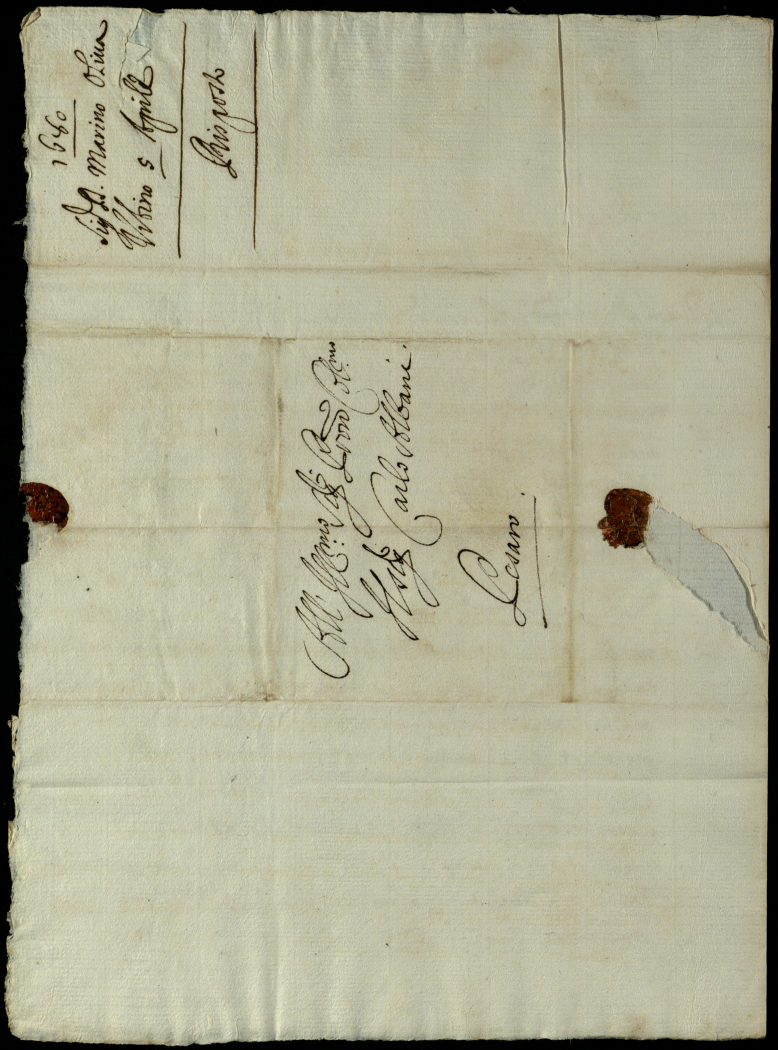 1680
Sig.r D. Marino Oliva
Urbino 5 Aprile
Risposto
All Ill.mo Sig.r P.rone Col.mo
Il Sig.r Carlo Albani.
Pesaro.